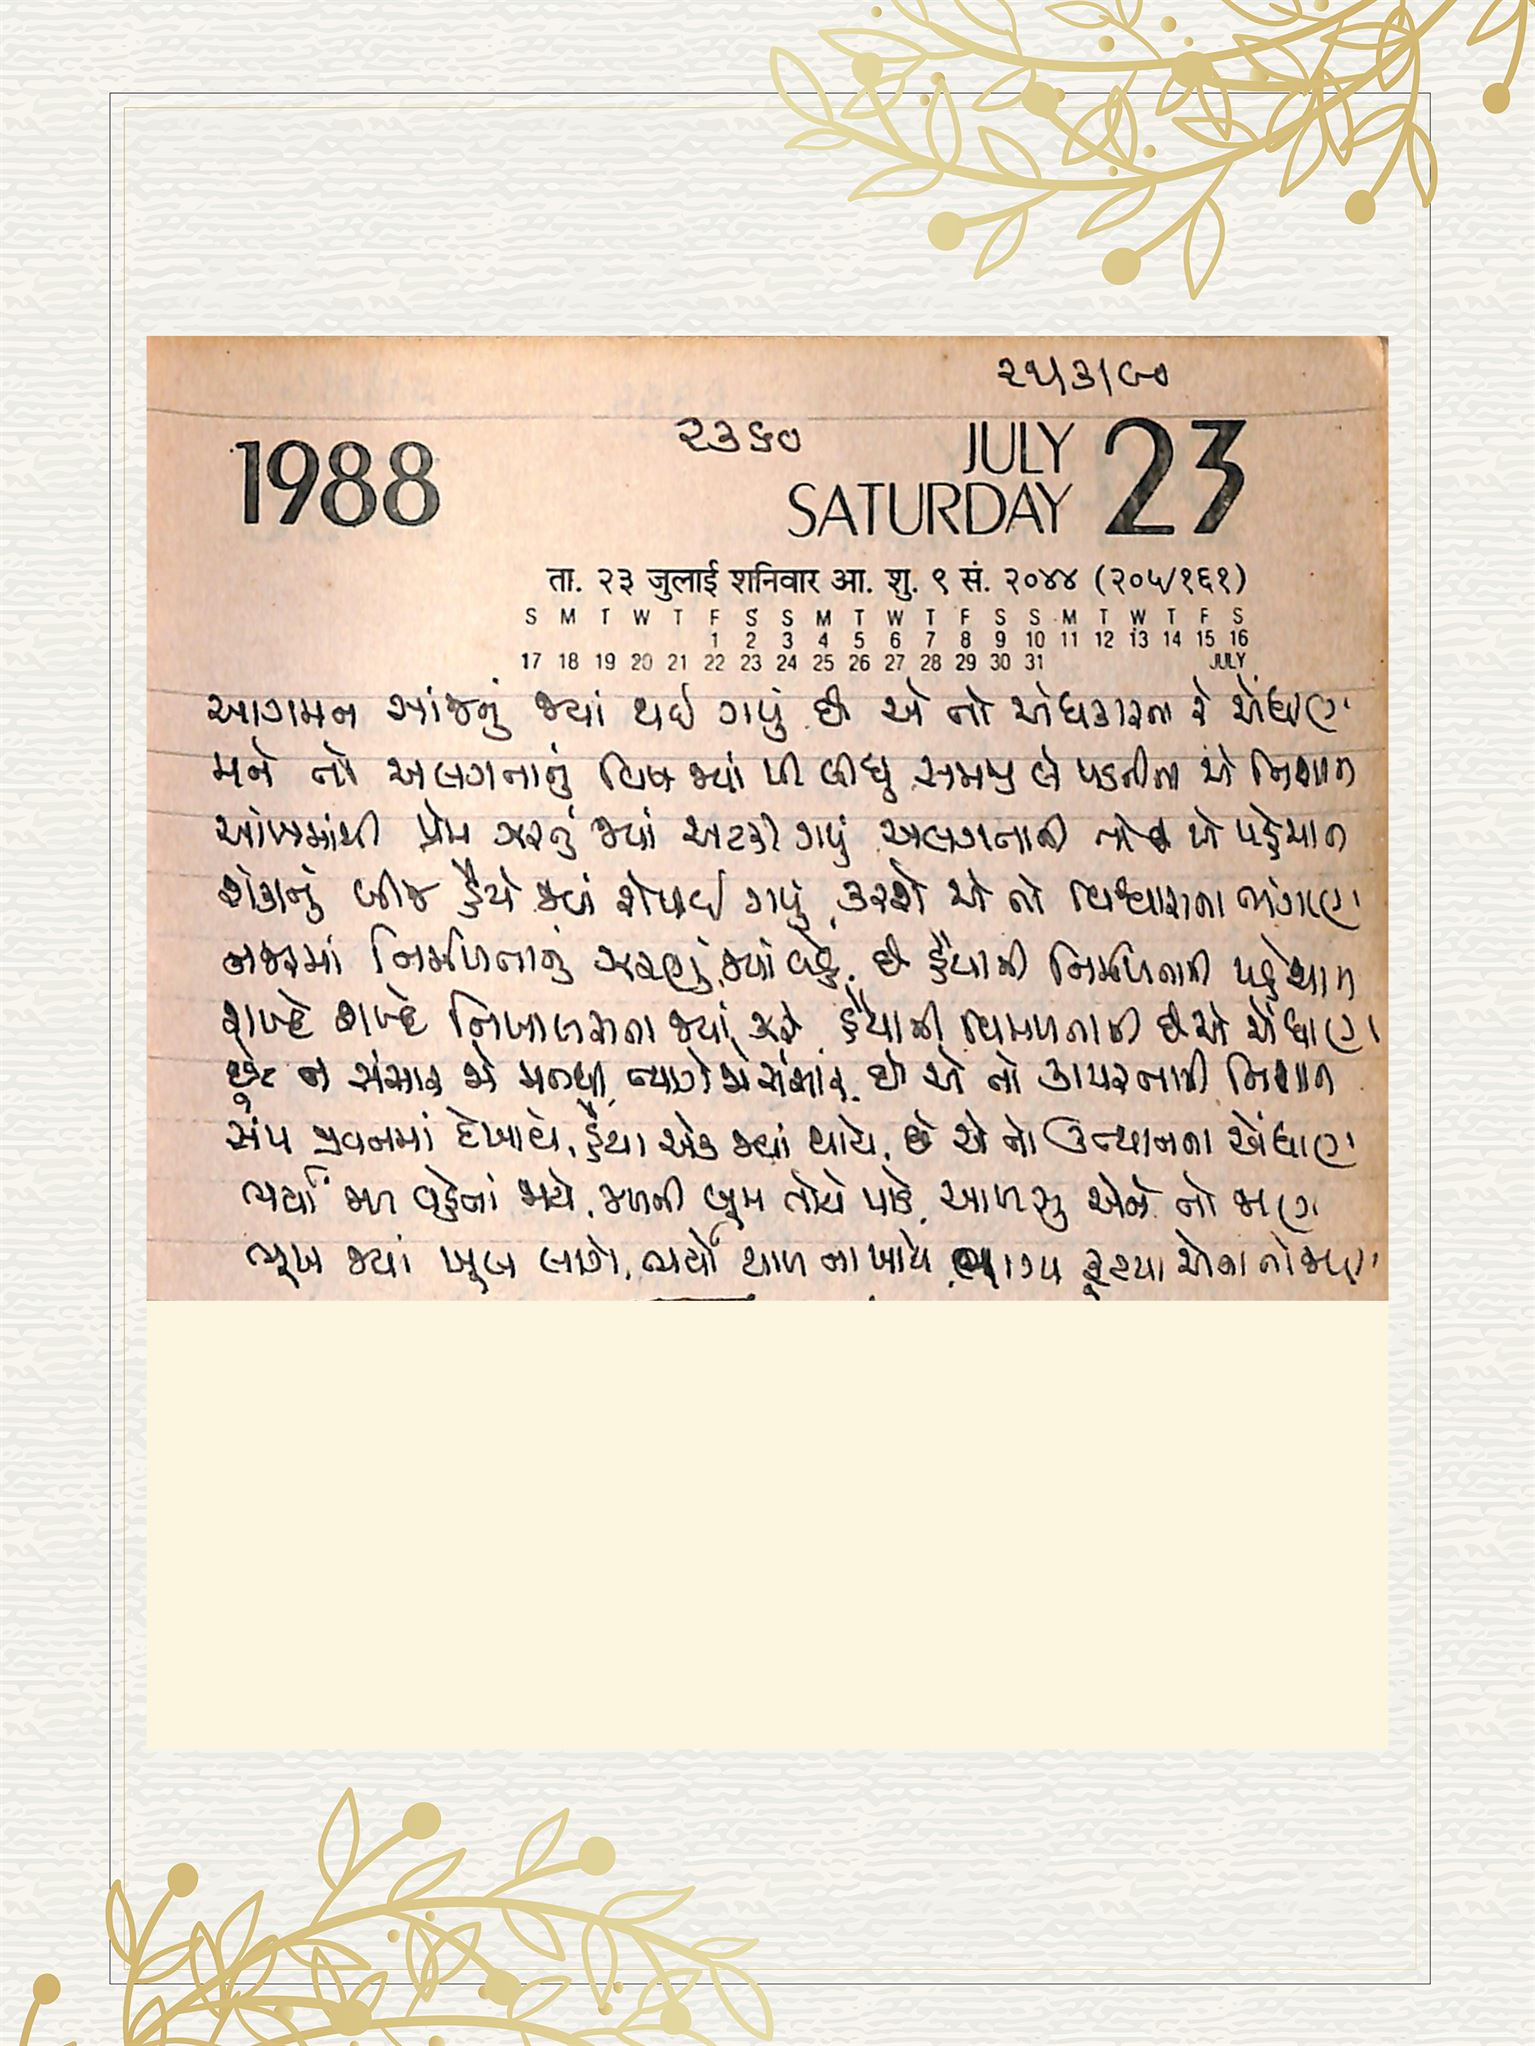 ૨૫/૩/૯૦
૨૩૯૦
1988
JULY 23
SATURDAY
ता. २३ जुलाई शनिवार आ. शु. ९ सं. २०४४ (२०५/१६१)
S M T W T F S S M T W T F S S M T W T F S
1 2 3 4 5 6 7 8 9 10 11 12 13 14 15 16
17 18 19 20 21 22 23 24 25 26 27 28 29 30 31 JULY
આગમન સાંજનું જ્યાં થઈ ગયું છે એ તો અંધકારના રે એંધાણ
મને તો અલગતાનું વિષ જ્યાં પી લીધું સમજી લે પડતીના એ નિશાન
આંખમાંથી પ્રેમ ઝરતું જ્યાં અટકી ગયું અલગતાની તો એ પહેચાન
શંકાનું બીજ હૈયે જ્યાં રોપાઈ ગયું, કરશે એ તો વિશ્વાસના ભંગાણ
નજરમાં નિર્મળતાનું ઝરણું જ્યાં વહે, છે હૈયાની નિર્મળતાની પહેચાન
શબ્દે શબ્દે નિખાલસતા જ્યાં ઝરે, હૈયાની વિમળતાની છે એ એંધાણ
છૂટે ન સંસાર જે મનથી, ત્યાગે જે સંસાર, છે એ તો કાયરતાની નિશાન
સંપ જીવનમાં દેખાયે, હૈયા એક જ્યાં થાયે, છે એ તો ઉત્થાનના એંધાણ
ભર્યાં જળ વહેતાં જાયે, જળની બૂમ તોયે પાડે, આળસુ એને તો જાણ
ભૂખ જ્યાં ખૂબ લાગે, ભર્યો થાળ ના ખાયે, ભાગ્ય રૂઠ્યા એના તો જાણ